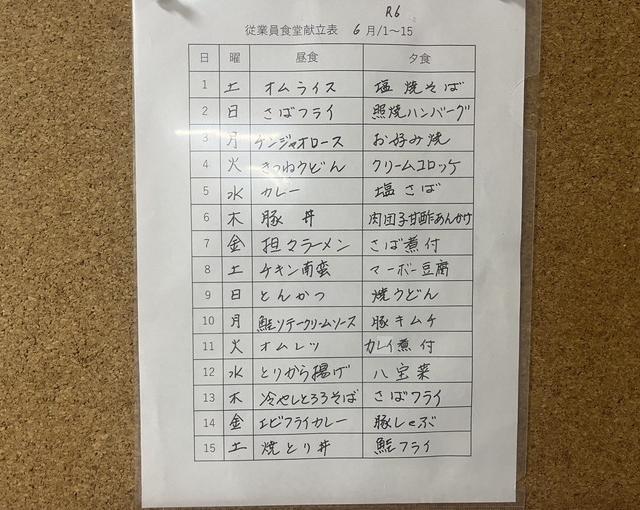 R6
従業員食堂献立表 6月/1～15
日 曜 昼食 夕食
1 土 オムライス 塩焼そば
2 日 さばフライ 照焼ハンバーグ
3 月 チンジャオロース お好み焼
4 火 きつねうどん クリームコロッケ
5 水 カレー 塩さば
6 木 豚丼 肉団子甘酢あんかけ
7 金 担々ラーメン さば煮付
8 土 チキン南蛮 マーボー豆腐
9 日 とんかつ 焼うどん
10 月 鮭ソテークリームソース 豚キムチ
11 火 オムレツ カレイ煮付
12 水 とりから揚げ 八宝菜
13 木 冷やしとろろそば さばフライ
14 金 エビフライカレー 豚しゃぶ
15 土 焼とり丼 鮭フライ